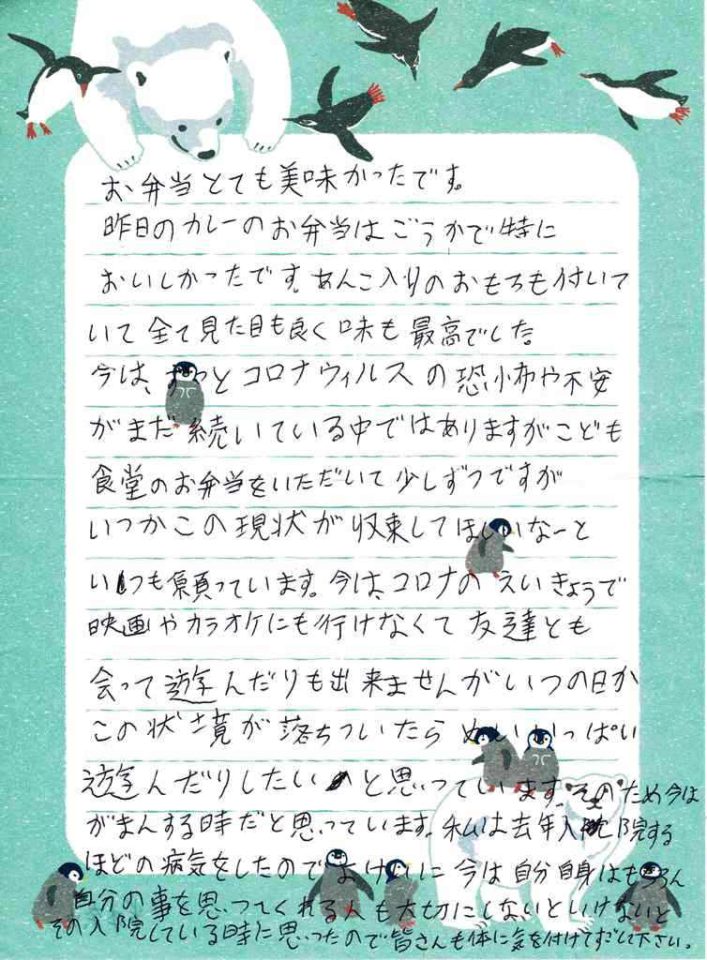 お弁当とても美味かったです。
昨日のカレーのお弁当はごうかで特に
おいしかったです。あんこ入りのおもちも付いて
いて全て見た目も良く味も最高でした。
今は、ずっとコロナウィルスの恐怖や不安
がまだ続いている中ではありますがこども
食堂のお弁当をいただいて少しずつですが
いつかこの現状が収束してほしいなーと
いつも願っています。今は、コロナのえいきょうで
映画やカラオケにも行けなくて友達とも
会って遊んだりも出来ませんがいつの日か
この状境が落ちついたら めいいっぱい
遊んだりしたいと思っています。そのため今は
がまんする時だと思っています。私は去年入院する
ほどの病気をしたのでよけいに今は自分自身はもちろん
自分の事を思ってくれる人も大切にしないといけないと
その入院している時に思ったので皆さんも体に気を付けてすごして下さい。